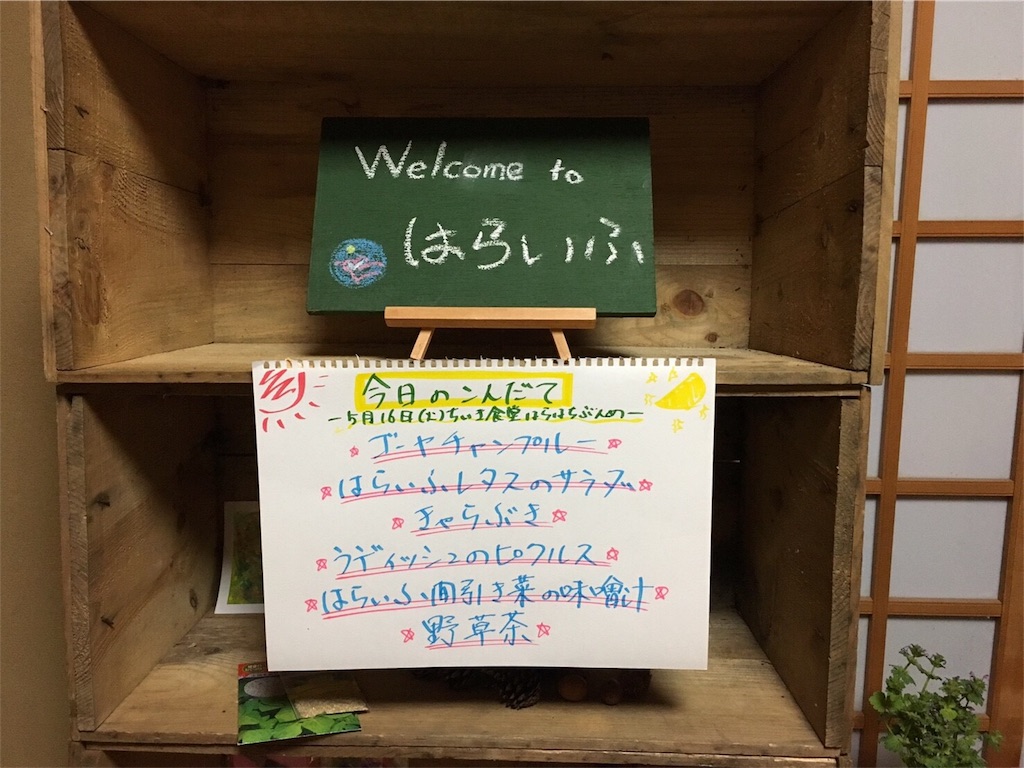 Welcome to
はらいふ
今日のこんだて
-5月16日(火)ちいき食堂はらはちぶんめ-
ゴーヤチャンプルー
はらいふレタスのサラダ
きゃらぶき
ラディッシュのピクルス
はらいふ間引き菜の味噌汁
野草茶